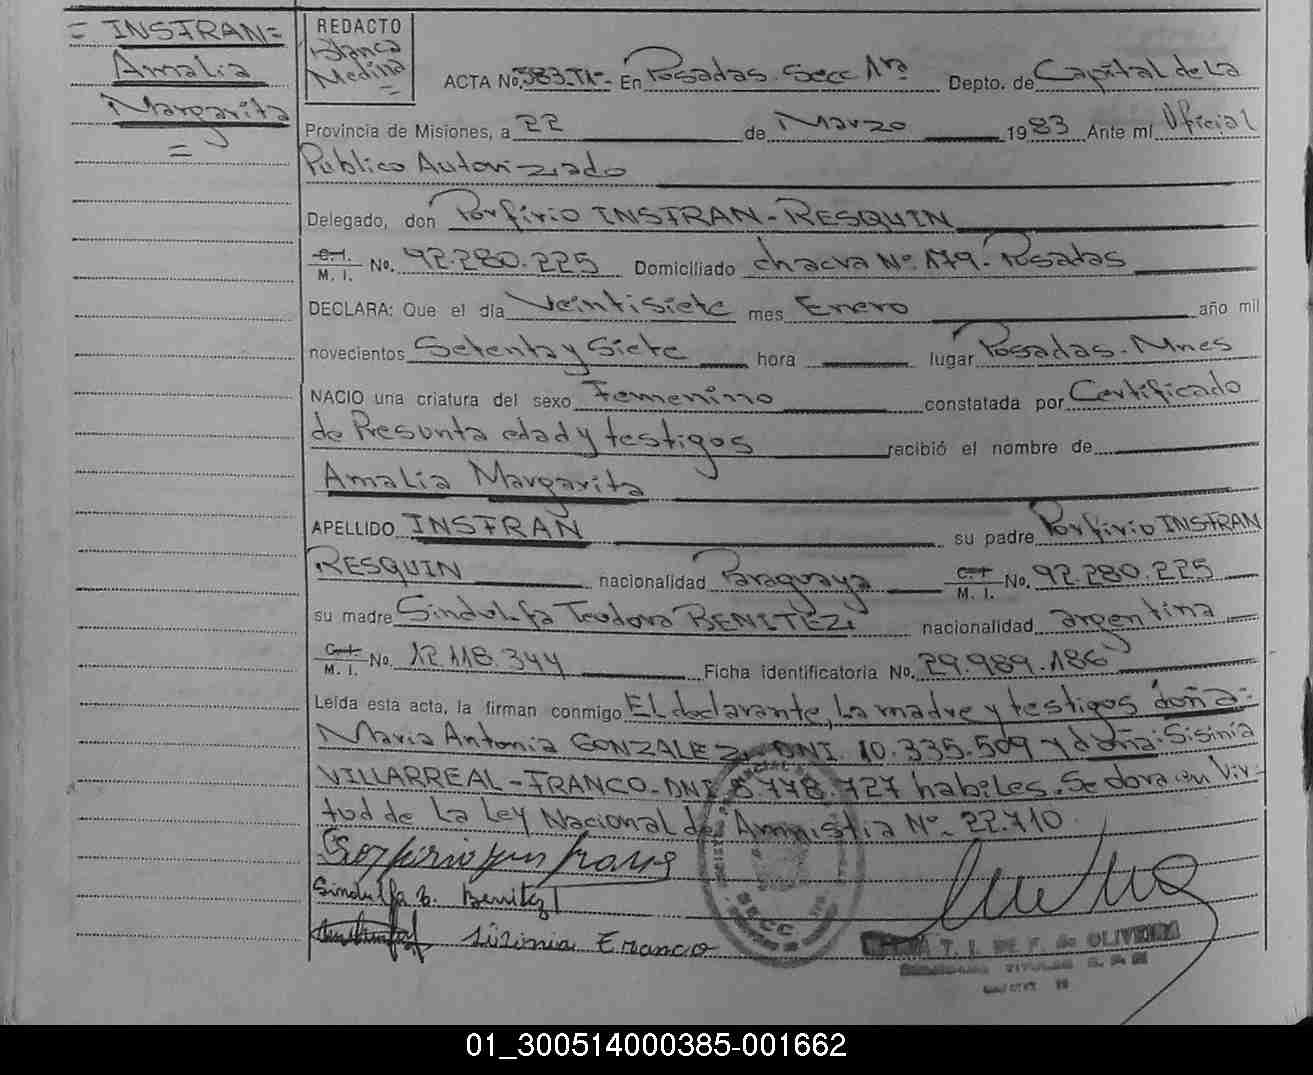 = INSFRAN =
Amalia
Margarita
=
REDACTO
Blanca
Medina
=
ACTA No. 383. TI - En Posadas. Secc 1ra Depto. de Capital de La
Provincia de Misiones, a 22 de Marzo 1983 Ante mí Oficial
Público Autorizado
Delegado, don Porfirio INSFRAN - RESQUIN
C.I.
M. I. No. 92.280.225 Domiciliado chacra Nº 179. Posadas
DECLARA: Que el día Veintisiete mes Enero año mil
novecientos Setenta y Siete hora lugar Posadas. Mnes
NACIO una criatura del sexo Femenino constatada por Certificado
de Presunta edad y testigos recibió el nombre de
Amalia Margarita
APELLIDO INSFRAN su padre Porfirio INSFRAN
RESQUIN nacionalidad Paraguaya C.I. M. I. No. 92.280.225
su madre Sindulfa Teodora BENITEZ nacionalidad argentina
C.I. M. I. No. 12.118.344 Ficha identificatoria No. 29.989.186
Leída esta acta, la firman conmigo El declarante, La madre y testigos doña=
Maria Antonia GONZALEZ, DNI. 10.335.509 y doña: Sisinia
VILLARREAL - FRANCO. DNI 8.778.727 habiles. Se labra en Vir-
tud de La Ley Nacional de Amnistia Nº 22.710
Sindulfa B. Benitez
Sisinia Franco
SECC
T. I. DE F. de OLIVEIRA
01_300514000385-001662